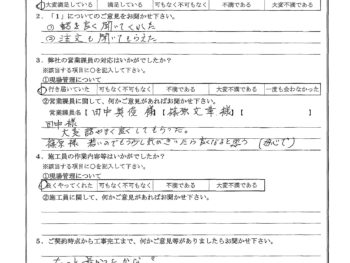 大変満足している 満足している 可も不可もなく 不満である 大変不満である
2．「1」についてのご意見をお聞かせ下さい。
① 話を良く聞いてくれた
② 注文も聞いてもらえた
3．弊社の営業課員の対応はいかがでしたか？
※該当する項目に○を記入して下さい。
①現場管理について
行き届いていた 可もなく不可もなく 不満である 大変不満である 一度も会わなかった
②営業課員に関して、何かご意見があればお聞かせ下さい。
営業課員名【田中英俊 様】【篠原文幸 様】【 】
田中様
大変話やすく良くしてもらた。
篠原様 若いのでもう少し
4．施工員の作業内容等はいかがでしたか？
※該当する項目に○を記入して下さい。
①現場管理について
良くやってくれた 可もなく不可もなく 不満である 大変不満である
②施工員に関して、何かご意見があればお聞かせ下さい。
5．ご契約時点から工事完工まで、何かご意見等がありましたらお聞かせ下さい。